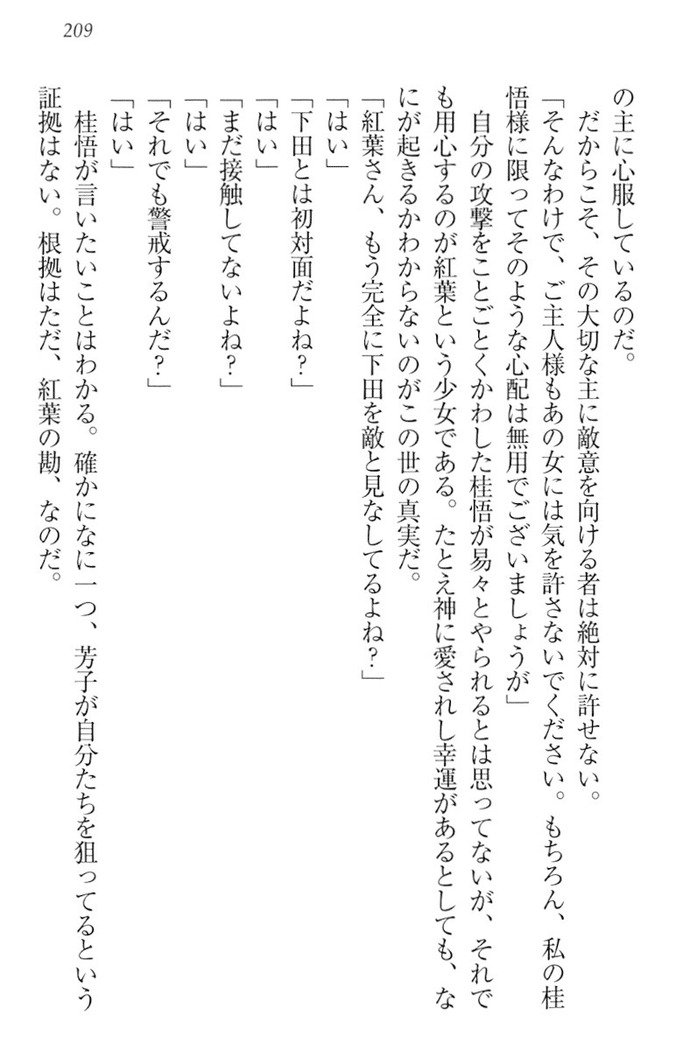 209
の主に心服しているのだ。
だからこそ、その大切な主に敵意を向ける者は絶対に許せない。
「そんなわけで、ご主人様もあの女には気を許さないでください。もちろん、私の桂
悟様に限ってそのような心配は無用でございましょうが」
自分の攻撃をことごとくかわした桂悟が易々とやられるとは思ってないが、それで
も用心するのが紅葉という少女である。たとえ神に愛されし幸運があるとしても、な
にが起きるかわからないのがこの世の真実だ。
「紅葉さん、もう完全に下田を敵と見なしてるよね？」
「はい」
「下田とは初対面だよね？」
「はい」
「まだ接触してないよね？」
「はい」
「それでも警戒するんだ？」
「はい」
桂悟が言いたいことはわかる。確かになに一つ、芳子が自分たちを狙ってるという
証拠はない。根拠はただ、紅葉の勘、なのだ。